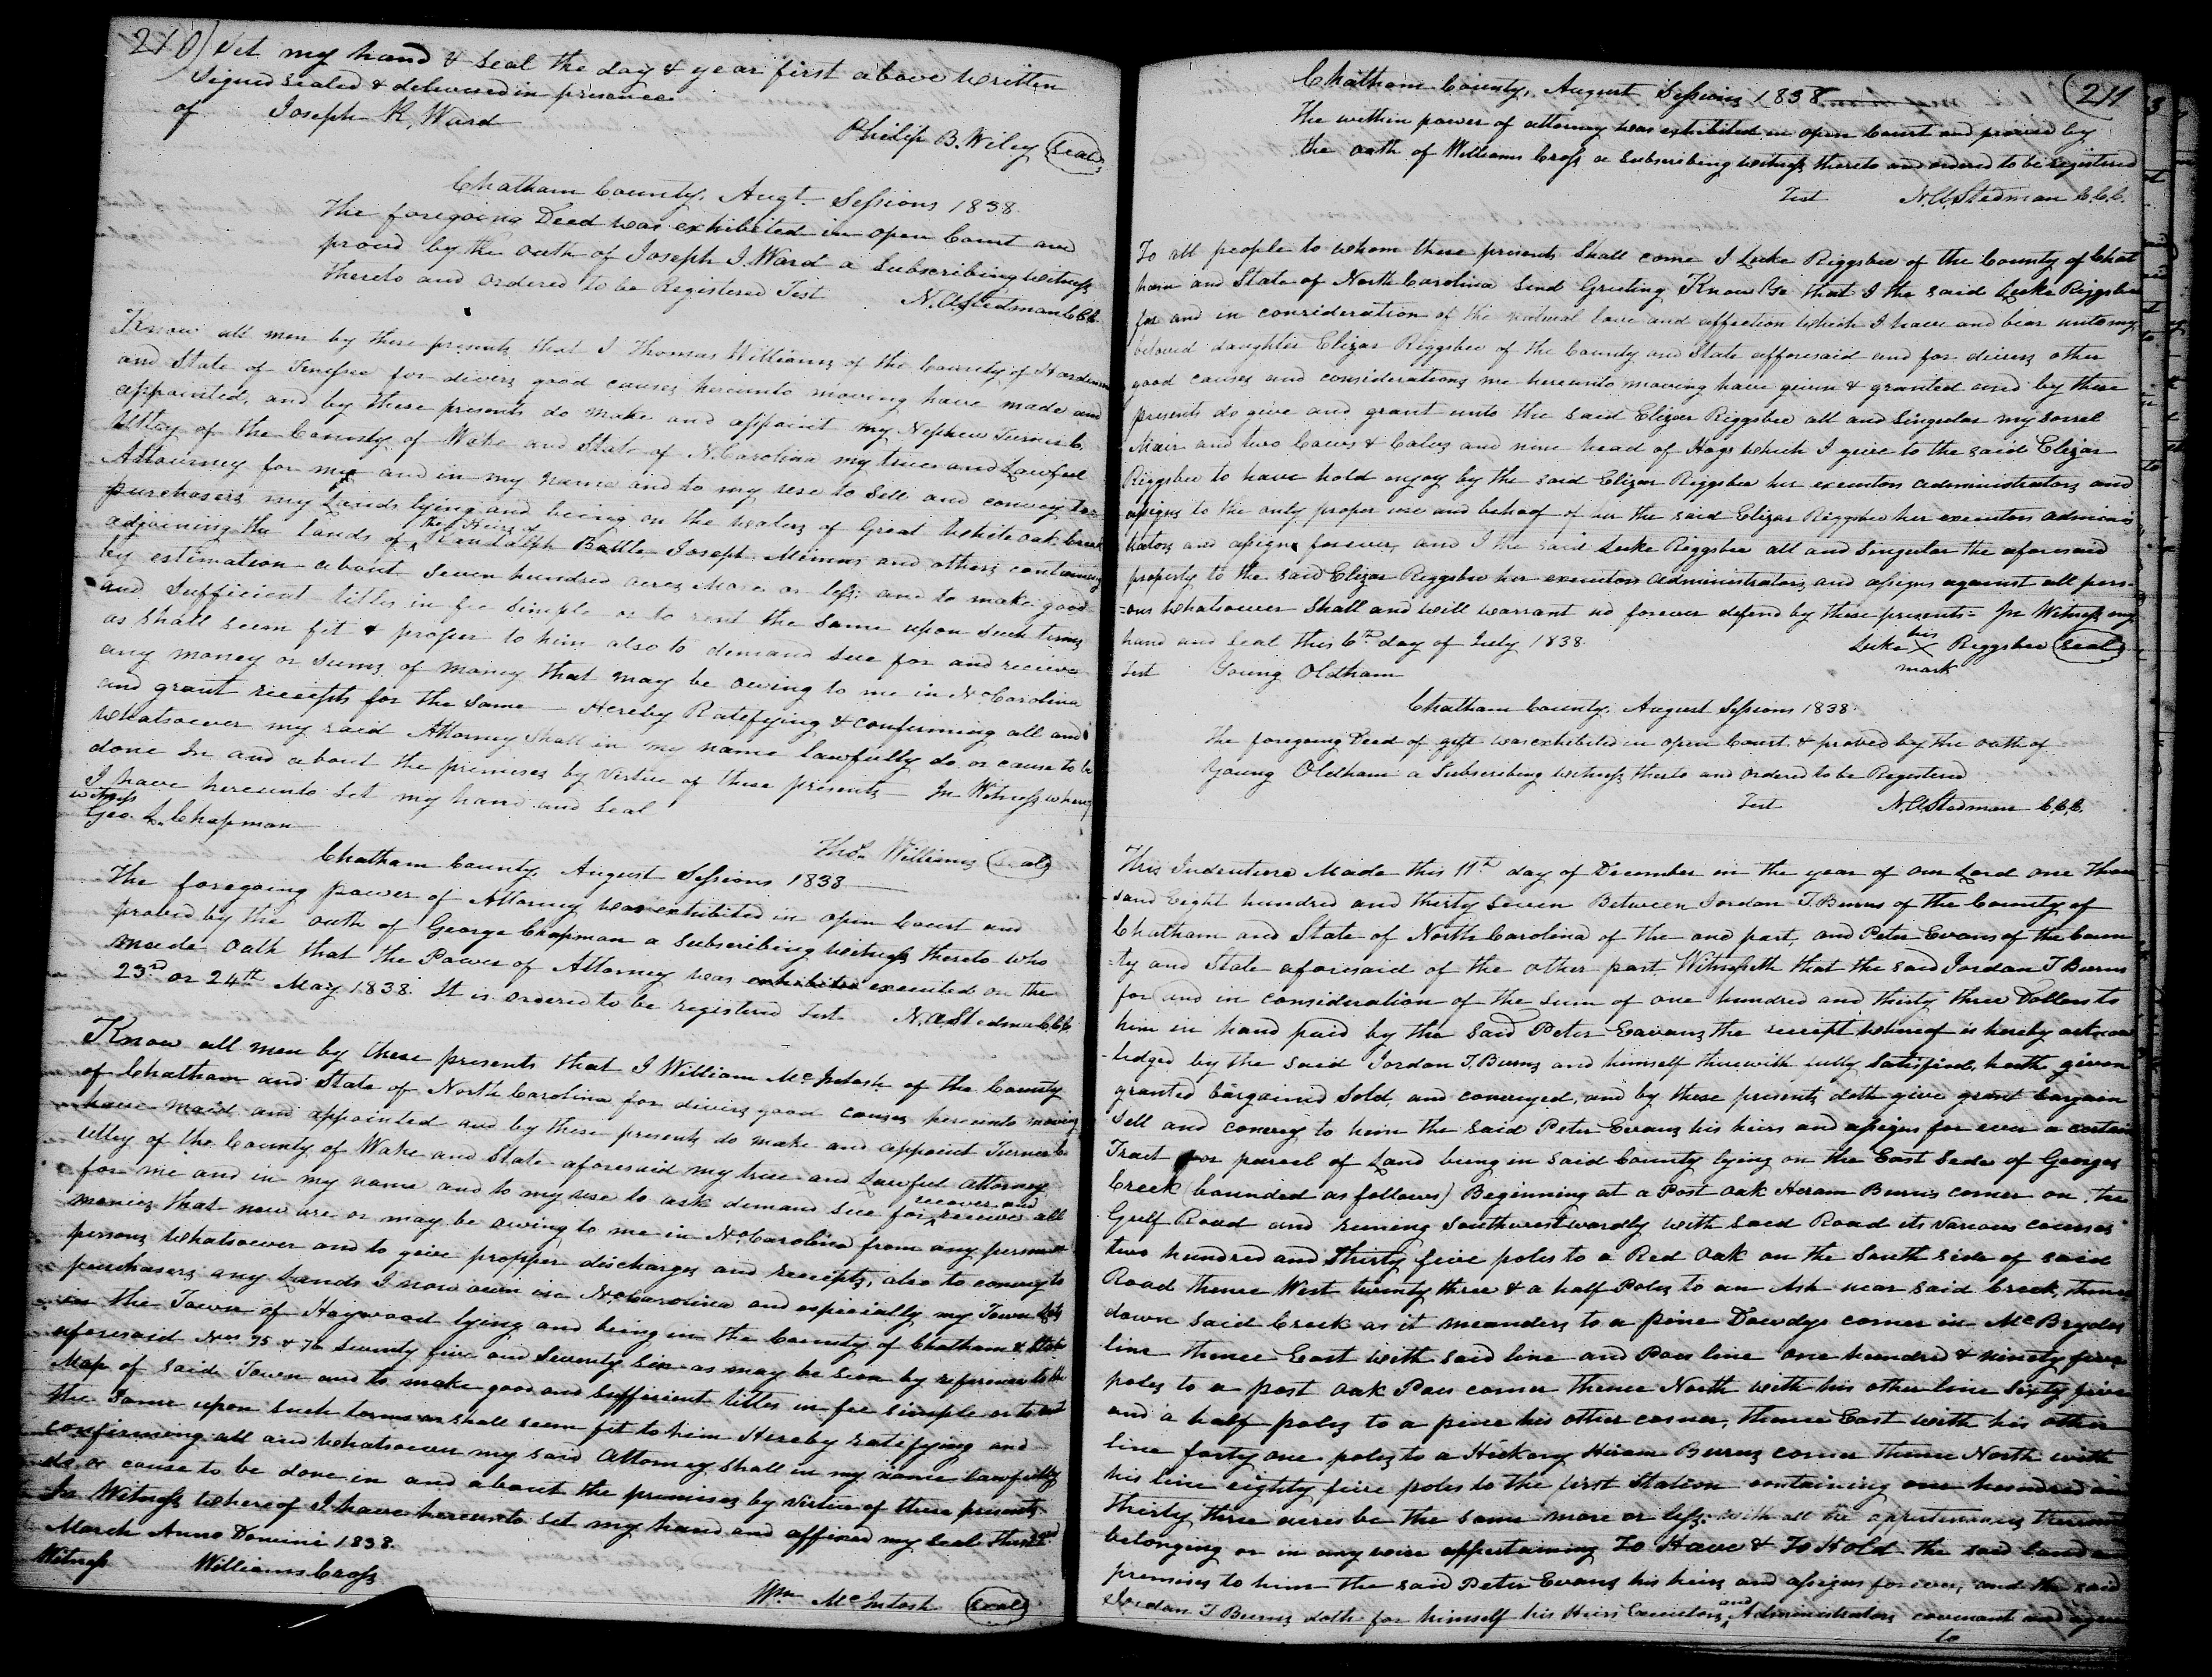 210) Set my hand & Seal the day & year first above written
Signed sealed & delivered in presence
of Joseph K. Ward
Philip B. Wiley (Seal)
Chatham County, Augt. Sessions 1838.
The foregoing Deed was exhibited in open Court and
proved by the oath of Joseph J. Ward a Subscribing witness
thereto and ordered to be Registered Test N. A. Stedman C.C.C.
Know all men by these presents that I Thomas Williams of the County of
and State of for divers good causes hereunto moving have made and
appointed, and by these presents do make and appoint my Nephew Turner C.
Utley of the County of Wake and State of N. Carolina my true and Lawful
Attourney for me and in my name and to my use to sell and convey to
purchasers my Lands lying and being on the waters of Great White oak Creek
adjoining the lands of the Heirs of Battle Joseph Mimms and others containing
by estimation about Seven hundred acres More or less: and to make good
and Sufficient titles in fee Simple or to rent the same upon such terms
as shall seem fit & proper to him also to demand Sue for and recieve
any money or Sums of money that may be owing to me in No. Carolina
and grant receipts for the Same - Hereby Ratefying & confirming all and
whatsoever my said Attorney Shall in my name lawfully do or cause to be
done In and about the premises by Virtue of these presents - In Witness whereof
I have hereunto Set my hand and Seal
witness
Geo. L. Chapman
Thos. Williams (Seal)
Chatham County, August Sessions 1838
The foregoing power of Attorney was exhibited in open Court and
proved by the oath of George Chapman a Subscribing witness thereto who
made oath that the Power of Attorney was exhibited executed on the
23rd or 24th May 1838. It is ordered to be registered Test N. A. Stedman C.C.C.
Know all men by these presents that I William McIntosh of the County
of Chatham and State of North Carolina for divers good causes hereunto moving
have maid and appointed and by these presents do make and appoint Turner C.
Utley of the County of Wake and State aforesaid my true and Lawful attorney
for me and in my name and to my use to ask demand sue for recover and receive all
monies that now are or may be owing to me in No. Carolina from any person or
persons whatsoever and to give propper discharges and receipts, also to convey to
purchasers any Lands I now own in No. Carolina and especially my Town Lots
in the Town of Haywood lying and being in the County of Chatham & State
aforesaid Nos. 75 & 76 Seventy five and Seventy Six as may be seen by reference to the
Map of said Town and to make good and Sufficient titles in fee simple or to rent
the Same upon such terms as shall seem fit to him Hereby ratifying and
confirming all and whatsoever my said Attorney Shall in my name lawfully
do or cause to be done in and about the premises by virtue of these presents
In Witness whereof I have hereunto Set my hand and affixed my Seal this
March Anno Domini 1838.
Witness Williams Cross
Wm McIntosh (Seal)
211
Chatham County, August Sessions 1838
The within power of attorney was exhibited in open Court and proved by
the oath of Williams Cross a Subscribing witness thereto and ordered to be registered
Test N. A. Stedman C.C.C.
To all people to whom these presents Shall come I Luke Riggsbee of the County of Chat
ham and State of North Carolina Send Greeting Know Ye that I the said Luke Riggsbee
for and in consideration of the natural love and affection which I have and bear unto my
beloved daughter Elizar Riggsbee of the County and State afforesaid and for divers other
good causes and considerations me hereunto moving have given & granted and by these
presents do give and grant unto the said Elizar Riggsbee all and Singular my sorrel
Mair and two Cows & Calves and nine head of Hogs which I give to the said Elizar
Riggsbee to have hold enjoy by the said Elizar Riggsbee her executors administrators and
assigns to the only proper use and behoof of her the said Elizar Riggsbee her executors adminis
trators and assigns forever, and I the said Luke Riggsbee all and Singular the aforesaid
property to the said Elizar Riggsbee her executors administrators and assigns against all pers-
-ons whatsoever Shall and will warrant and forever defend by these presents - In Witness my
hand and Seal this 6th day of July 1838.
Luke his X mark Riggsbee (Seal)
Test Young Oldham
Chatham County, August Sessions 1838.
The foregoing Deed of gift was exhibited in open Court & proved by the oath of
Young Oldham a Subscribing witness thereto and ordered to be Registered
Test N. A. Stedman C.C.C.
This Indenture Made this 11th day of December in the year of our Lord one Thou
-sand Eight hundred and thirty Seven Between Jordan T. Burns of the County of
Chatham and State of North Carolina of the one part, and Peter Evans of the Coun
-ty and State aforesaid of the other part Witnesseth that the said Jordan T Burns
for and in consideration of the Sum of one hundred and thirty three Dollars to
him in hand paid by the Said Peter Eavans the receipt whereof is hereby acknow
-ledged by the Said Jordan T. Burns and himself therewith fully Satisfied, hath given
granted bargained Sold, and conveyed, and by these presents doth give grant bargain
Sell and convey to him the said Peter Evans his heirs and assigns for ever a certain
Tract or parcel of Land being in said County lying on the East Side of Georges
Creek (bounded as follows) Beginning at a Post Oak Heram Burns corner on the
Gulf Road and runing Southwestwardly with said Road its various courses
two hundred and Thirty five poles to a Red Oak on the South side of said
Road thence West twenty three & a half Poles to an Ash near said Creek, thence
down Said Creek as it meanders to a pine Dowdys corner in McBrydes
line thence East with said line and Poes line one hundred & ninety five
poles to a post Oak Poes corner thence North with his other line Sixty five
and a half poles to a pine his other corner, thence East with his other
line forty one poles to a Hickory Hiram Burns corner thence North with
his line eighty five poles to the first Station containing one hundred and
thirty three acres be the same more or less: with all the appurtenances thereunto
belonging or in any wise appertaining To Have & To Hold the said land &
premises to him the said Peter Evans his heirs and assigns for ever, and the said
Jordan T Burns doth for himself his Heirs Executors and Administrators covenant and agree
to